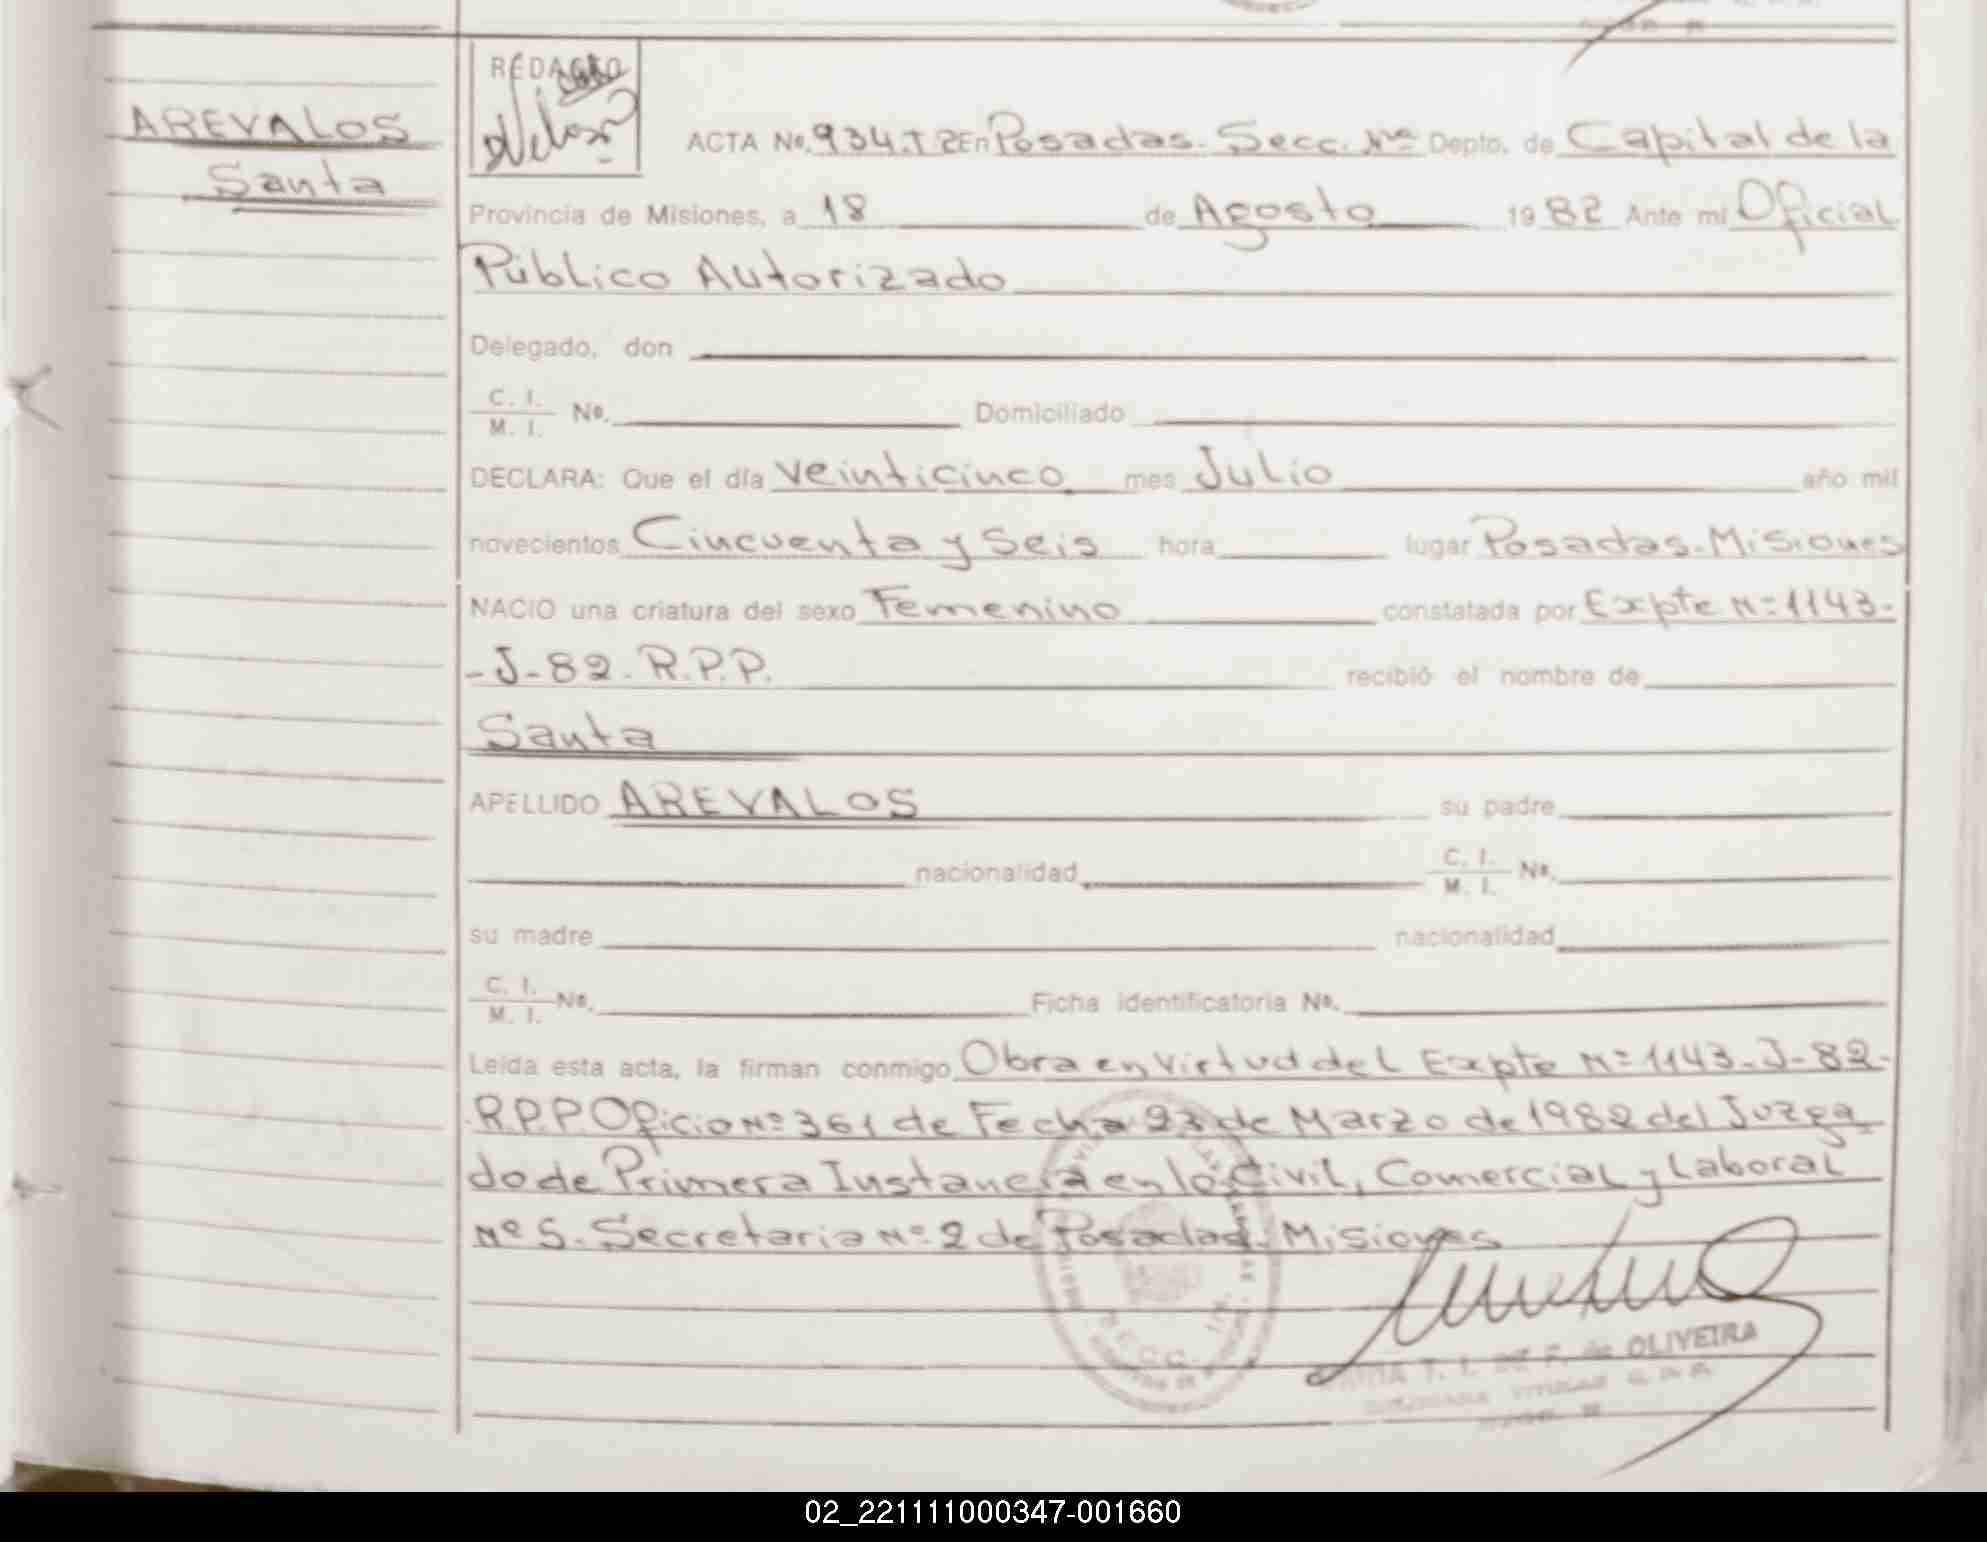 AREVALOS
Santa
REDACTO
ACTA No. 934.T2 En Posadas. Secc. Depto. de Capital de la
Provincia de Misiones, a 18 de Agosto 1982 Ante mi Oficial
Público Autorizado
Delegado, don
C. I.
M. I. No. Domiciliado
DECLARA: Que el día veinticinco mes Julio año mil
novecientos Cincuenta y Seis hora lugar Posadas-Misiones
NACIO una criatura del sexo Femenino constatada por Expte Nº 1143-
-J-82. R.P.P. recibió el nombre de
Santa
APELLIDO AREVALOS su padre
nacionalidad C. I.
M. I. No.
su madre nacionalidad
C. I.
M. I. No. Ficha identificatoria No.
Leída esta acta, la firman conmigo Obra en virtud del Expte Nº 1143-J-82-
R.P.P Oficio Nº 361 de Fecha 23 de Marzo de 1982 del Juzga
do de Primera Instancia en lo Civil, Comercial y Laboral
Nº 5. Secretaria Nº 2 de Posadas. Misiones
T. I. DE F. de OLIVEIRA
02_221111000347-001660